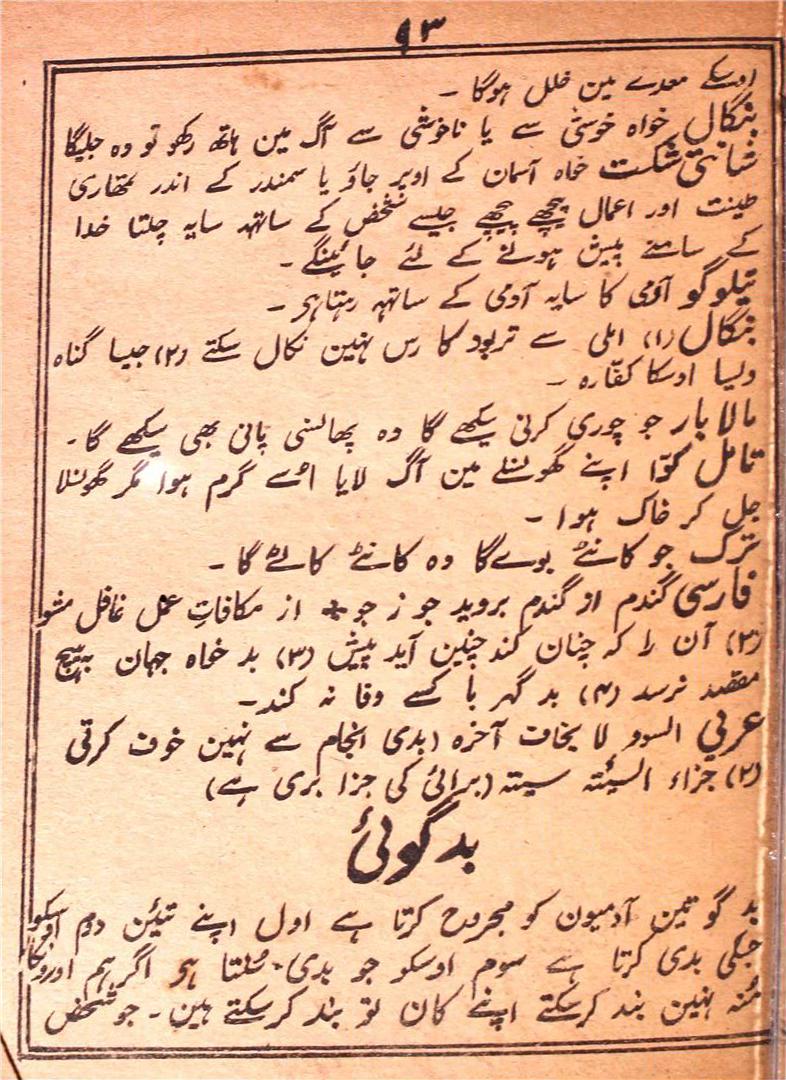 ٩٣
اوسکے معدے مین خلل ہوگا ۔
بنگال خواہ خوشی سے یا ناخوشی سے آگ مین ہاتھ رکھو تو وہ جلیگا
شانتی شکت خواہ آسمان کے اوپر جاؤ یا سمندر کے اندر تمھاری
طینت اور اعمال پیچھے پیچھے جیسے شخص کے ساتھہ سایہ چلتا خدا
کے سامنے پیش ہونے کے لئے جائینگے ۔
تیلوگو آدمی کا سایہ آدمی کے ساتھہ رہتا ہر ۔
بنگال (۱) املی سے تربود کا رس نہین نکال سکتے (۲) جیسا گناہ
ویسا اوسکا کفّارہ ۔
مالا بار جو چوری کرنی سیکھے گا وہ پھانسی پانی بھی سیکھے گا ۔
تامل کوّا اپنے گھونسلے مین آگ لایا اسے گرم ہوا مگر گھونسلا
جل کر خاک ہوا ۔
ترک جو کانٹے بوے گا وہ کانٹے کاٹے گا ۔
فارسی گندم از گندم بروید جو ز جو * از مکافاتِ عمل غافل مشو
(۲) آن را کہ چنان کند چنین آید پیش (۳) بد خواہ جہان بہیچ
مقصد نرسد (۴) بد گہر با کسے وفا نہ کند ۔
عربي السوو لا یخاف آخرہ (بدی انجام سے نہین خوف کرتی
(۲) جزاء السیئتہ سیتہ (برائی کی جزا بری ہے)
بد گوئی
بد گو تین آدمیون کو مجروح کرتا ہے اول اپنے تیئن دوم اوسکو
جسکی بدی کرتا ہے سوم اوسکو جو بدی سنتا ہر اگر ہم اورونکا
منہ نہین بند کرسکتے اپنے کان تو بند کرسکتے ہین ۔ جو شخص